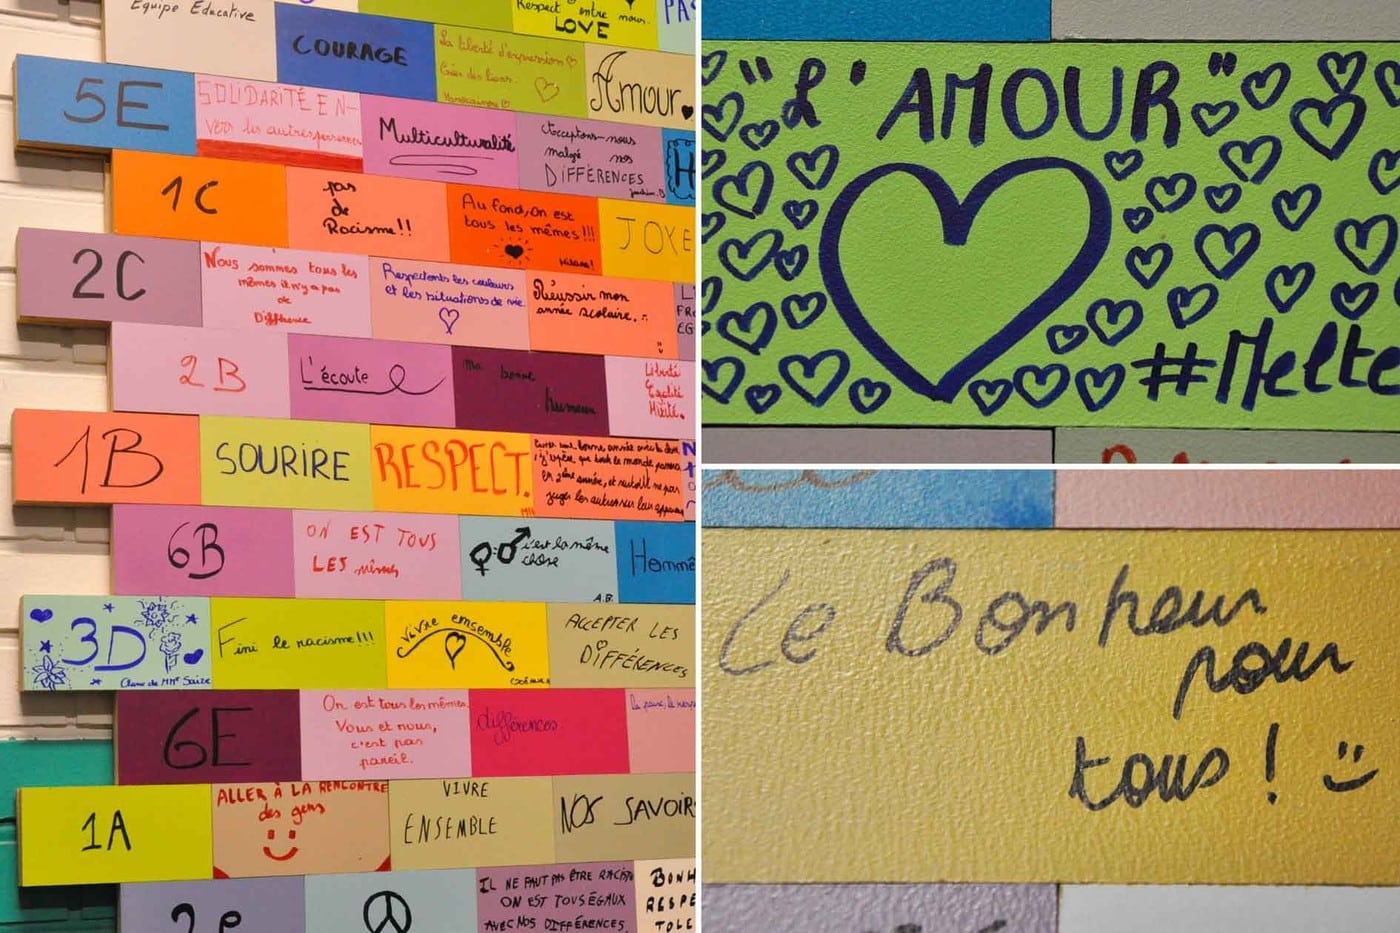 Equipe Educative
COURAGE
La liberté d'expression
Créer des liens.
Respect entre nous.
LOVE
PAS
Amour
5E
SOLIDARITÉ EN-
vers les autres personnes
Multiculturalité
Acceptons-nous
malgré nos
DIFFÉRENCES
H
1C
pas
de
Racisme!!
Au fond, on est
tous les mêmes!!!
JOKE
2C
Nous sommes tous les
mêmes il n'y a pas
de
Différence
Respectents les couleurs
et les situations de vie.
Réussir mon
année scolaire.
L
FR
EG
2B
L'écoute
Ma bonne
humeur
Liberté
Égalité
Mixité.
1B
SOURIRE
RESPECT.
une bonne année avec la
j'espère que tout le monde passera
en 2ème année, et surtout ne pas
juger les autres sur leur apparence
6B
ON EST TOUS
LES mêmes
c'est la même
chose
A.B.
Homme
3D
Classe de Mme Saize
Fini le racisme!!!
vivre ensemble
ACCEPTER LES
DIFFÉRENCES
6E
On est tous les mêmes.
Vous et nous,
c'est pas
pareil.
différences
la paix, le resp
1A
ALLER À LA RENCONTRE
des gens
VIVRE
ENSEMBLE
NOS SAVOIRS
IL NE FAUT PAS ÊTRE RACISTE
ON EST TOUS ÉGAUX
AVEC NOS DIFFÉRENCES
BONH
RESPE
TOLE
"L'AMOUR"
#Melte
Le Bonheur
pour
tous! :)